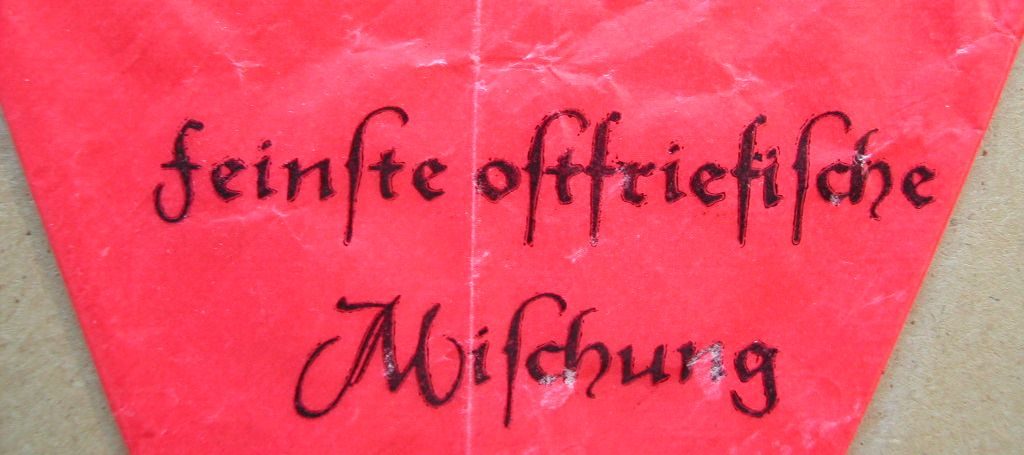 feinſte oſtfriefiſche
Miſchung